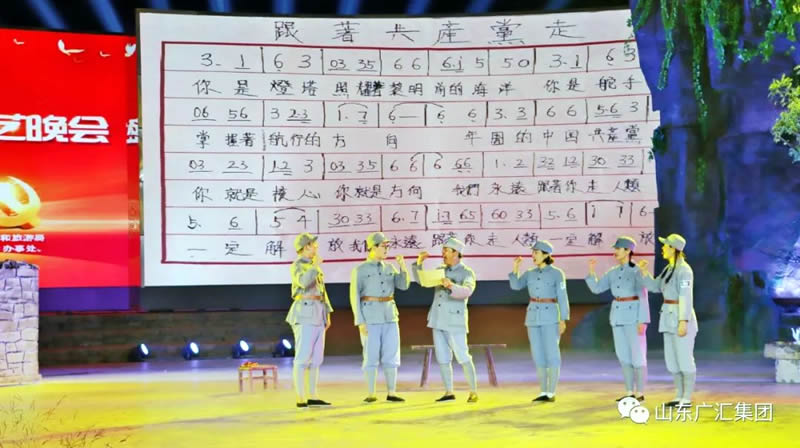 跟著共產黨走
3. 1 | 6 3 | 03 35 | 6 6 | 6.1 5 | 5 0 | 3. 1 | 6 3
你是燈塔 黎明前的海洋 你是舵手
06 56 | 3 2·3 | 1. 7 | 6 — | 6 6 | 3. 3 | 6 6 | 5·6 3
掌握著航行的方向 年固的中国共產黨
03 23 | 12 3 | 03 35 | 6 6 | 6 66 | 1. 2 | 32 12 | 30 33
你就是核心 你就是方向 我們永遠跟著你走 人類
5. 6 | 5 4 | 30 33 | 6. 7 | 17 65 | 60 33 | 5. 6 | 1 7 | 6-
一定解放 我们永遠跟著你走 人類一定解放
艺晚会
和旅游局
办事处。
山东广汇集团